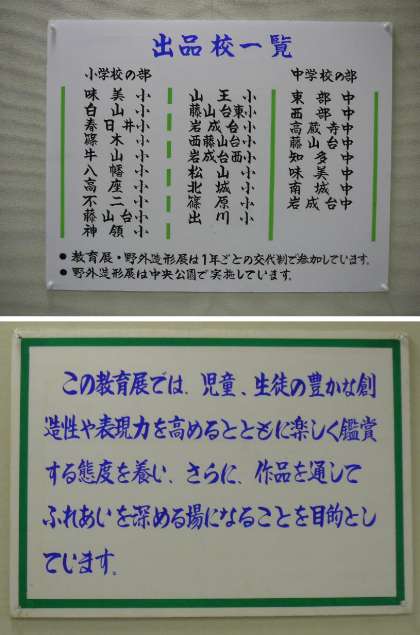 出品校一覧
小学校の部
味美小
白山小
春日井小
篠木小
牛山小
八幡小
高座小
不二小
藤山台小
神領小
山王小
藤山台東小
岩成台小
西藤山台小
岩成台西小
松山小
北城小
篠原小
出川小
中学校の部
東部中
西部中
高蔵寺中
藤山台中
知多中
味美中
南城中
岩成台中
● 教育展・野外造形展は1年ごとの交代制で参加しています。
● 野外造形展は中央公園で実施しています。
この教育展では、児童、生徒の豊かな創
造性や表現力を高めるとともに楽しく鑑賞
する態度を養い、さらに、作品を通して
ふれあいを深める場になることを目的とし
ています。